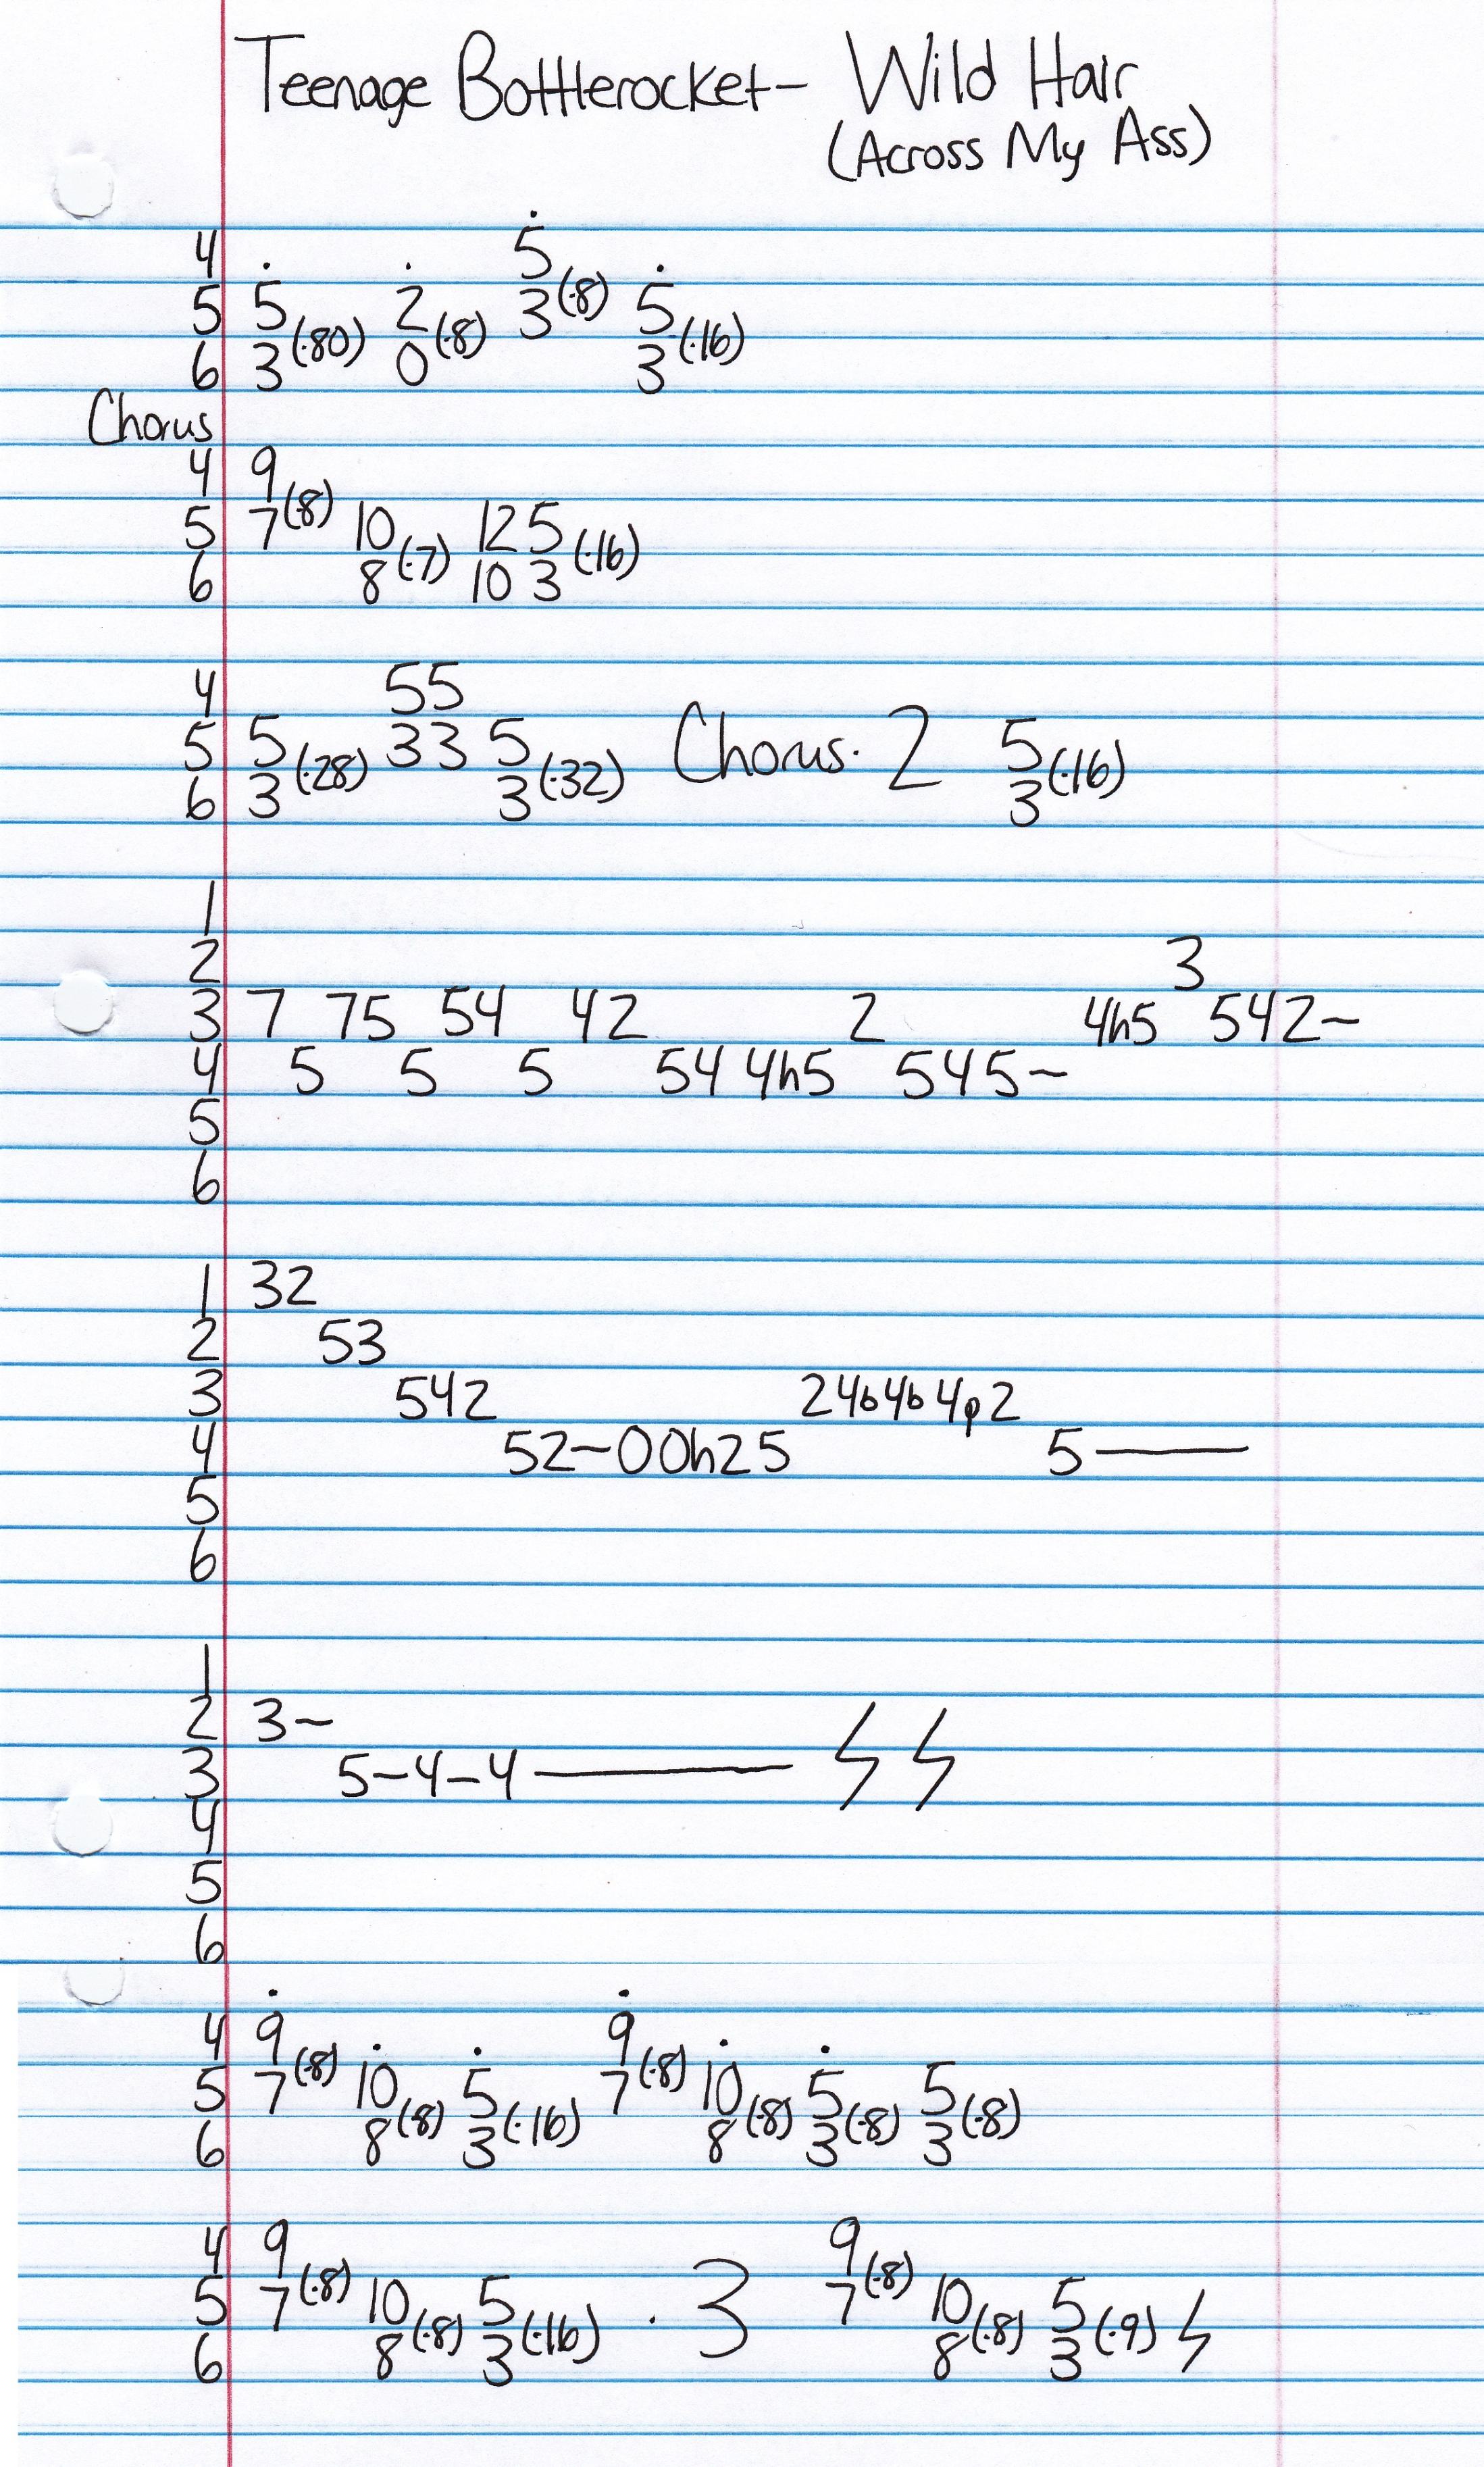 Teenage Bottlerocket- Wild Hair
(Across My Ass)
4 5(·8)
5 5(·80) 2(·8) 3 5(·16)
6 3 0 3
Chorus
4 9
5 7(·8) 10 12 5
6 8(·7) 10 3(·16)
4 55
5 5 33 5 Chorus· 2 5
6 3(·28) 3(·32) 3(·16)
1
2 3
3 7 75 54 42 2 4h5 542~
4 5 5 5 54 4h5 545~
5
6
1 32
2 53
3 542 24b4b4p2
4 52~00h25 5——
5
6
1
2 3~
3 5-4-4——— ϟ ϟ
4
5
6
4 9 9
5 7(·8) 10 5 7(·8) 10 5 5
6 8(·8) 3(·16) 8(·8) 3(·8) 3(·8)
4 9 9
5 7(·8) 10 5 · 3 7(·8) 10 5
6 8(·8) 3(·16) 8(·8) 3(·9) ϟ